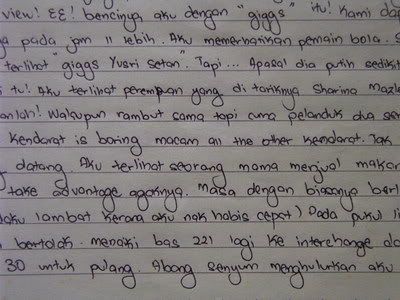 view! EE! bencinya aku dengan "giggs" itu! Kami dap
a pada "jam 11 lebih. Aku memerhatikan pemain bola. S
terlihat giggs Yusri setan". Tapi... Apasal dia putih sedikit
i tu! Aku terlihat perempuan yang di tariknya Sharina Mazle
anlah! Walaupun rambut sama tapi cuma pelanduk dua ser
Kendarat is boring macam all the other kendarat. Tak
datang. Aku terlihat seorang mama menjual makan
take advantage agaknya. masa dengan biasanya berl
aku lambat kerana aku nak habis cepat) Pada pukul li
bertolak. menaiki bas 221 lagi ke interchange da
30 untuk pulang. Abang senyum menghulurkan aku